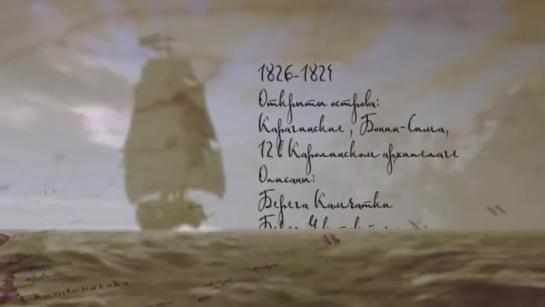 1826-1829
Открыты острова:
Карагинские, Бонин-Сима,
12 в Каролинском архипелаге
Описаны:
Берега Камчатки